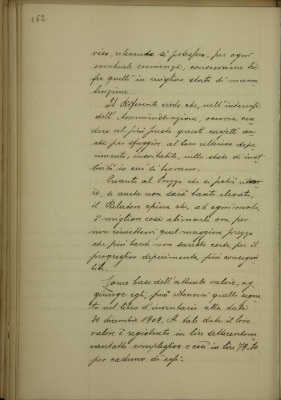 152
viso, ritenendo si potesse, per ogni
eventuale evenienza, conservarne
fra quelli in migliore stato di manu
tenzione.
Il Referente crede che, nell'interesse
dell'Amministrazione, occorra ven
dere al più presto questi cavalli an
che per sfuggire al loro ulteriore depe
rimento, inevitabile, nello stato di inat
tività in cui si trovano.
Quanto al prezzo che si potrà ricava
re, se anche non sarà tanto elevato,
il Relatore opina che, ad ogni modo,
è miglior cosa alienarli ora per
non rimetterci quel maggior prezzo
che più tardi non sarebbe certo, per il
progressivo deperimento, più consegui
bile.
Come base dell'attuale valore, ag
giunge egli, può ritenersi quello segna
to nel libro d'inventario alla data
31 dicembre 1909. A tale data il loro
valore è registrato in lire settecentono
vantotto complessive e così in lire 79.80
per caduno di essi.